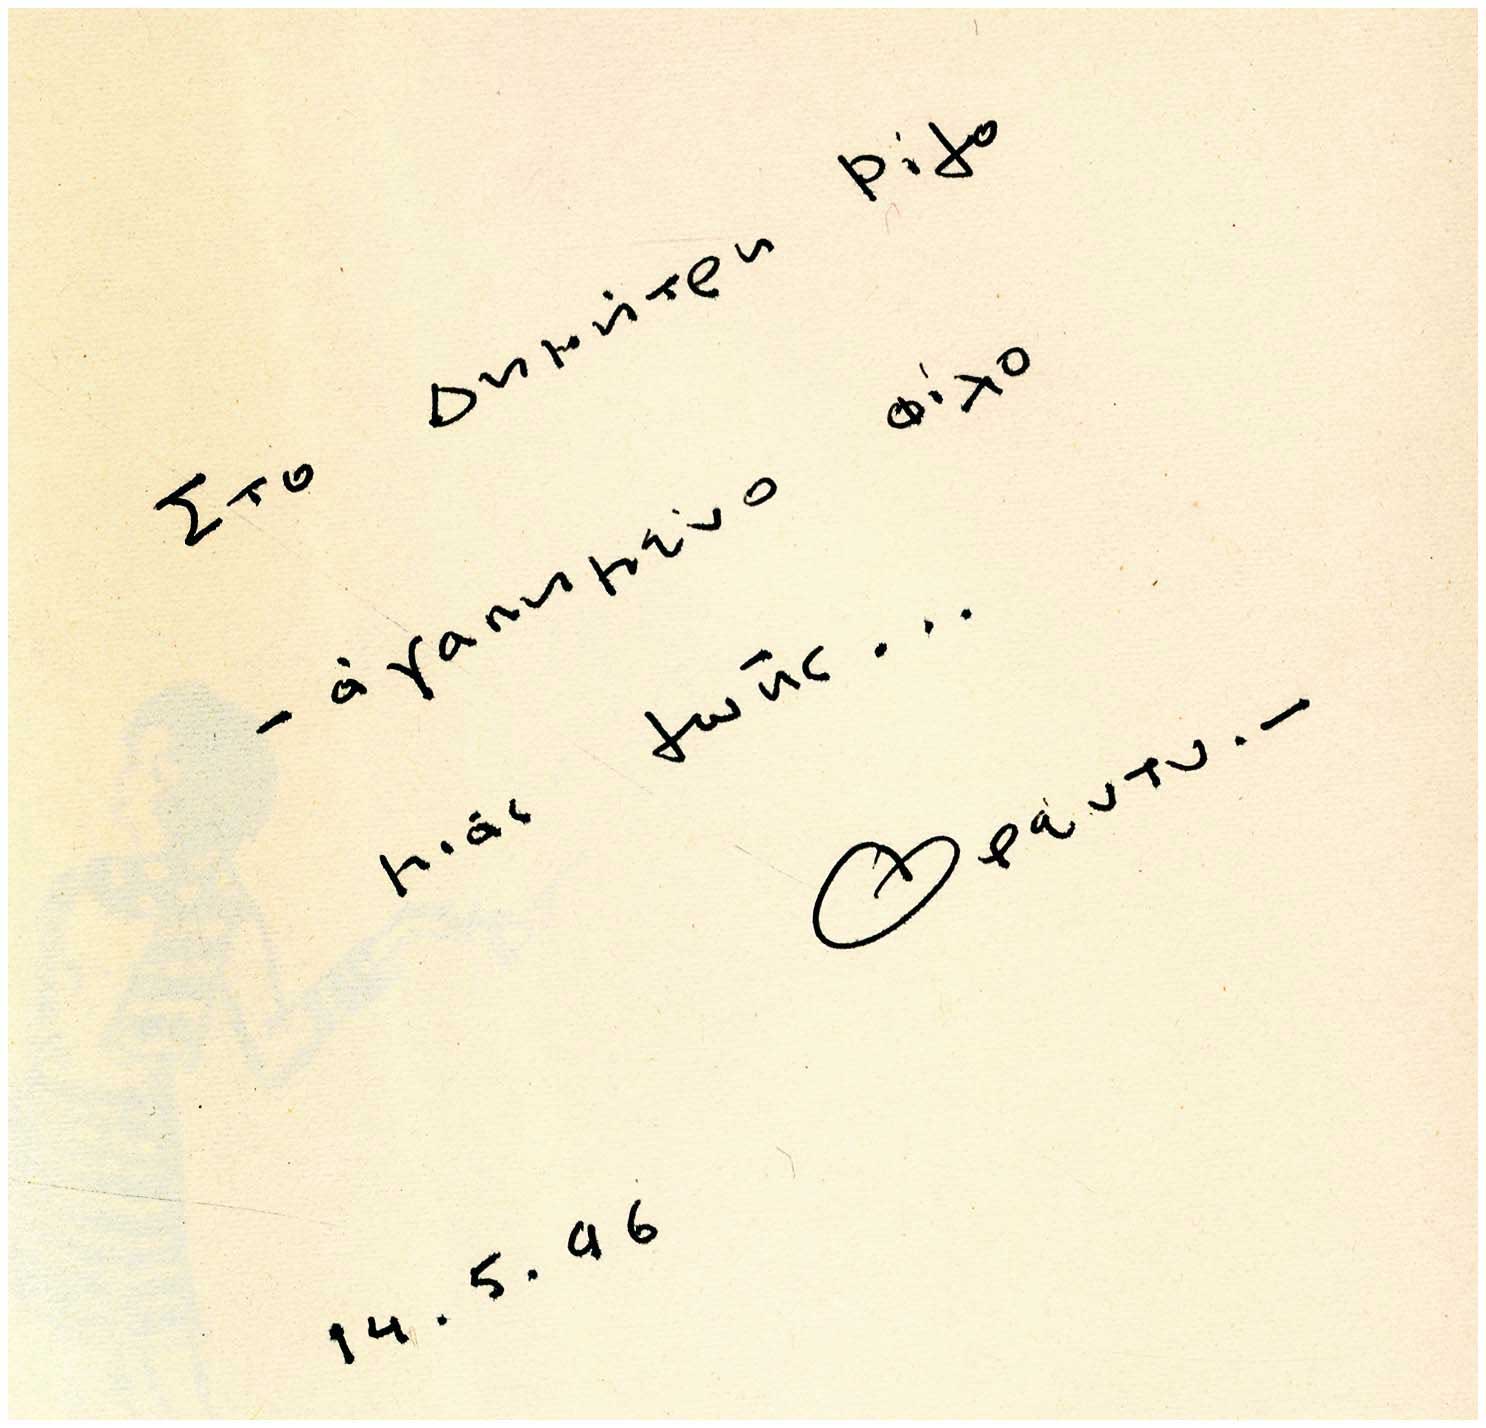 Στο Δημήτρη Ρίζο
- ἀγαπημένο φίλο
μιᾶς ζωῆς...
Φρέντυ.-
14.5.96